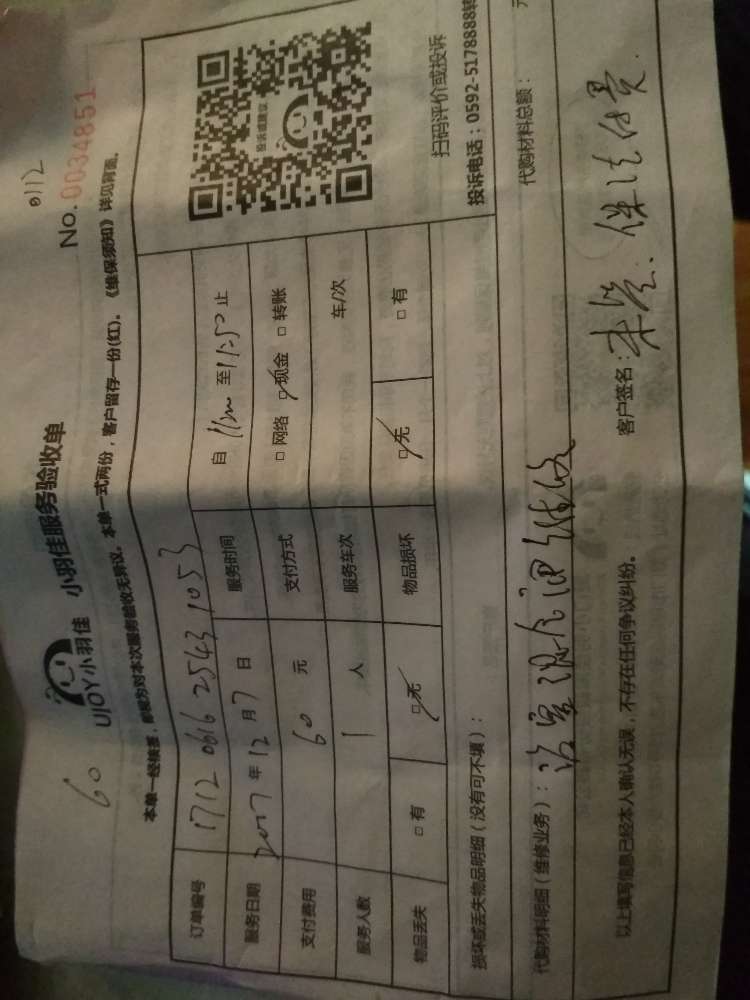 0112
60
UJOY小羽佳 小羽佳服务验收单
No. 0034851
本单一经核签，即视为对本次服务验收无异议。本单一式两份，客户留存一份(红)。《维保须知》详见背面。
订单编号 1712 0616 2543 1053
服务日期 2017 年 12 月 7 日 服务时间 自 至 11:50 止
支付费用 60 元 支付方式 □ 网络 □ 现金 □ 转账
服务人数 1 人 服务车次 车/次
物品丢失 □ 有 □ 无 物品损坏 □ 无 □ 有
投诉或建议
扫码评价或投诉
投诉电话：0592-5178888转
损坏或丢失物品明细（没有可不填）：
代购材料明细（维修业务）：
代购材料总额： 元
以上填写信息已经本人确认无误，不存在任何争议纠纷。 客户签名：